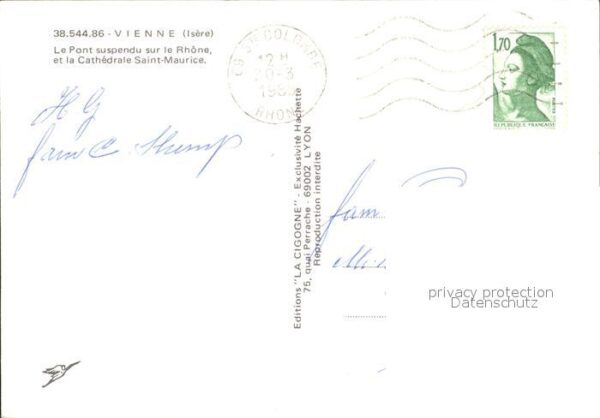 38.544.86 - VIENNE (Isère)
Le Pont suspendu sur le Rhône,
et la Cathédrale Saint-Maurice.
COLOMBE
12 H
20-3
RHONE
1,70
REPUBLIQUE FRANÇAISE
H G
fam C. Stump
Editions "LA CIGOGNE" - Exclusivité Hachette
75, quai Perrache - 69002 LYON
Reproduction interdite
fam
privacy protection
Datenschutz